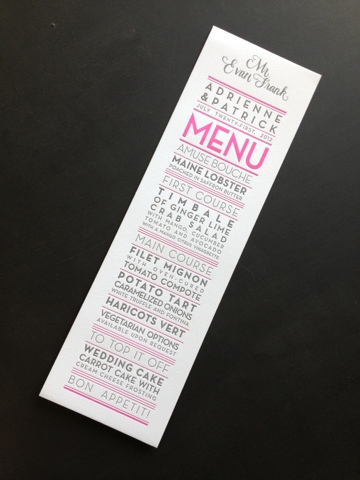 Mr.
Evan Frank
ADRIENNE
& PATRICK
JULY TWENTY-FIRST, 2012
MENU
AMUSE BOUCHE
MAINE LOBSTER
PORCHED IN SAFFRON BUTTER
FIRST COURSE
TIMBALE
OF GINGER LIME
CRAB SALAD
WITH MANGO, CUCUMBER
TOMATO AND AVOCADO
WITH A MANGO CITRUS VINAIGRETTE
MAIN COURSE
FILET MIGNON
WITH OVEN-CURED
TOMATO COMPOTE
POTATO TART
CARAMELIZED ONIONS
WHITE TRUFFLE AND FONTINA
HARICOTS VERT
VEGETARIAN OPTIONS
AVAILABLE UPON REQUEST
TO TOP IT OFF
WEDDING CAKE
CARROT CAKE WITH
CREAM CHEESE FROSTING
BON APPETIT!